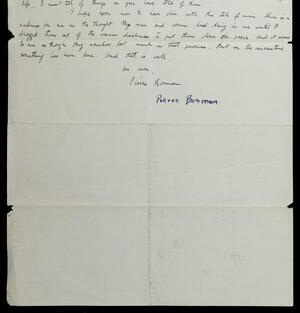 life, I must tell of things as you have told of them.
I hope soon now to have done with this tale of mine. There is a
sadness for me in the thought. My men and women lived long in me while I
dragged them out of the warm darkness to put them down on paper. And it seems
to me as though they somehow lost much in that process. But in the meantime
something has been done. And that is all
as ever
Pierre
Pierre